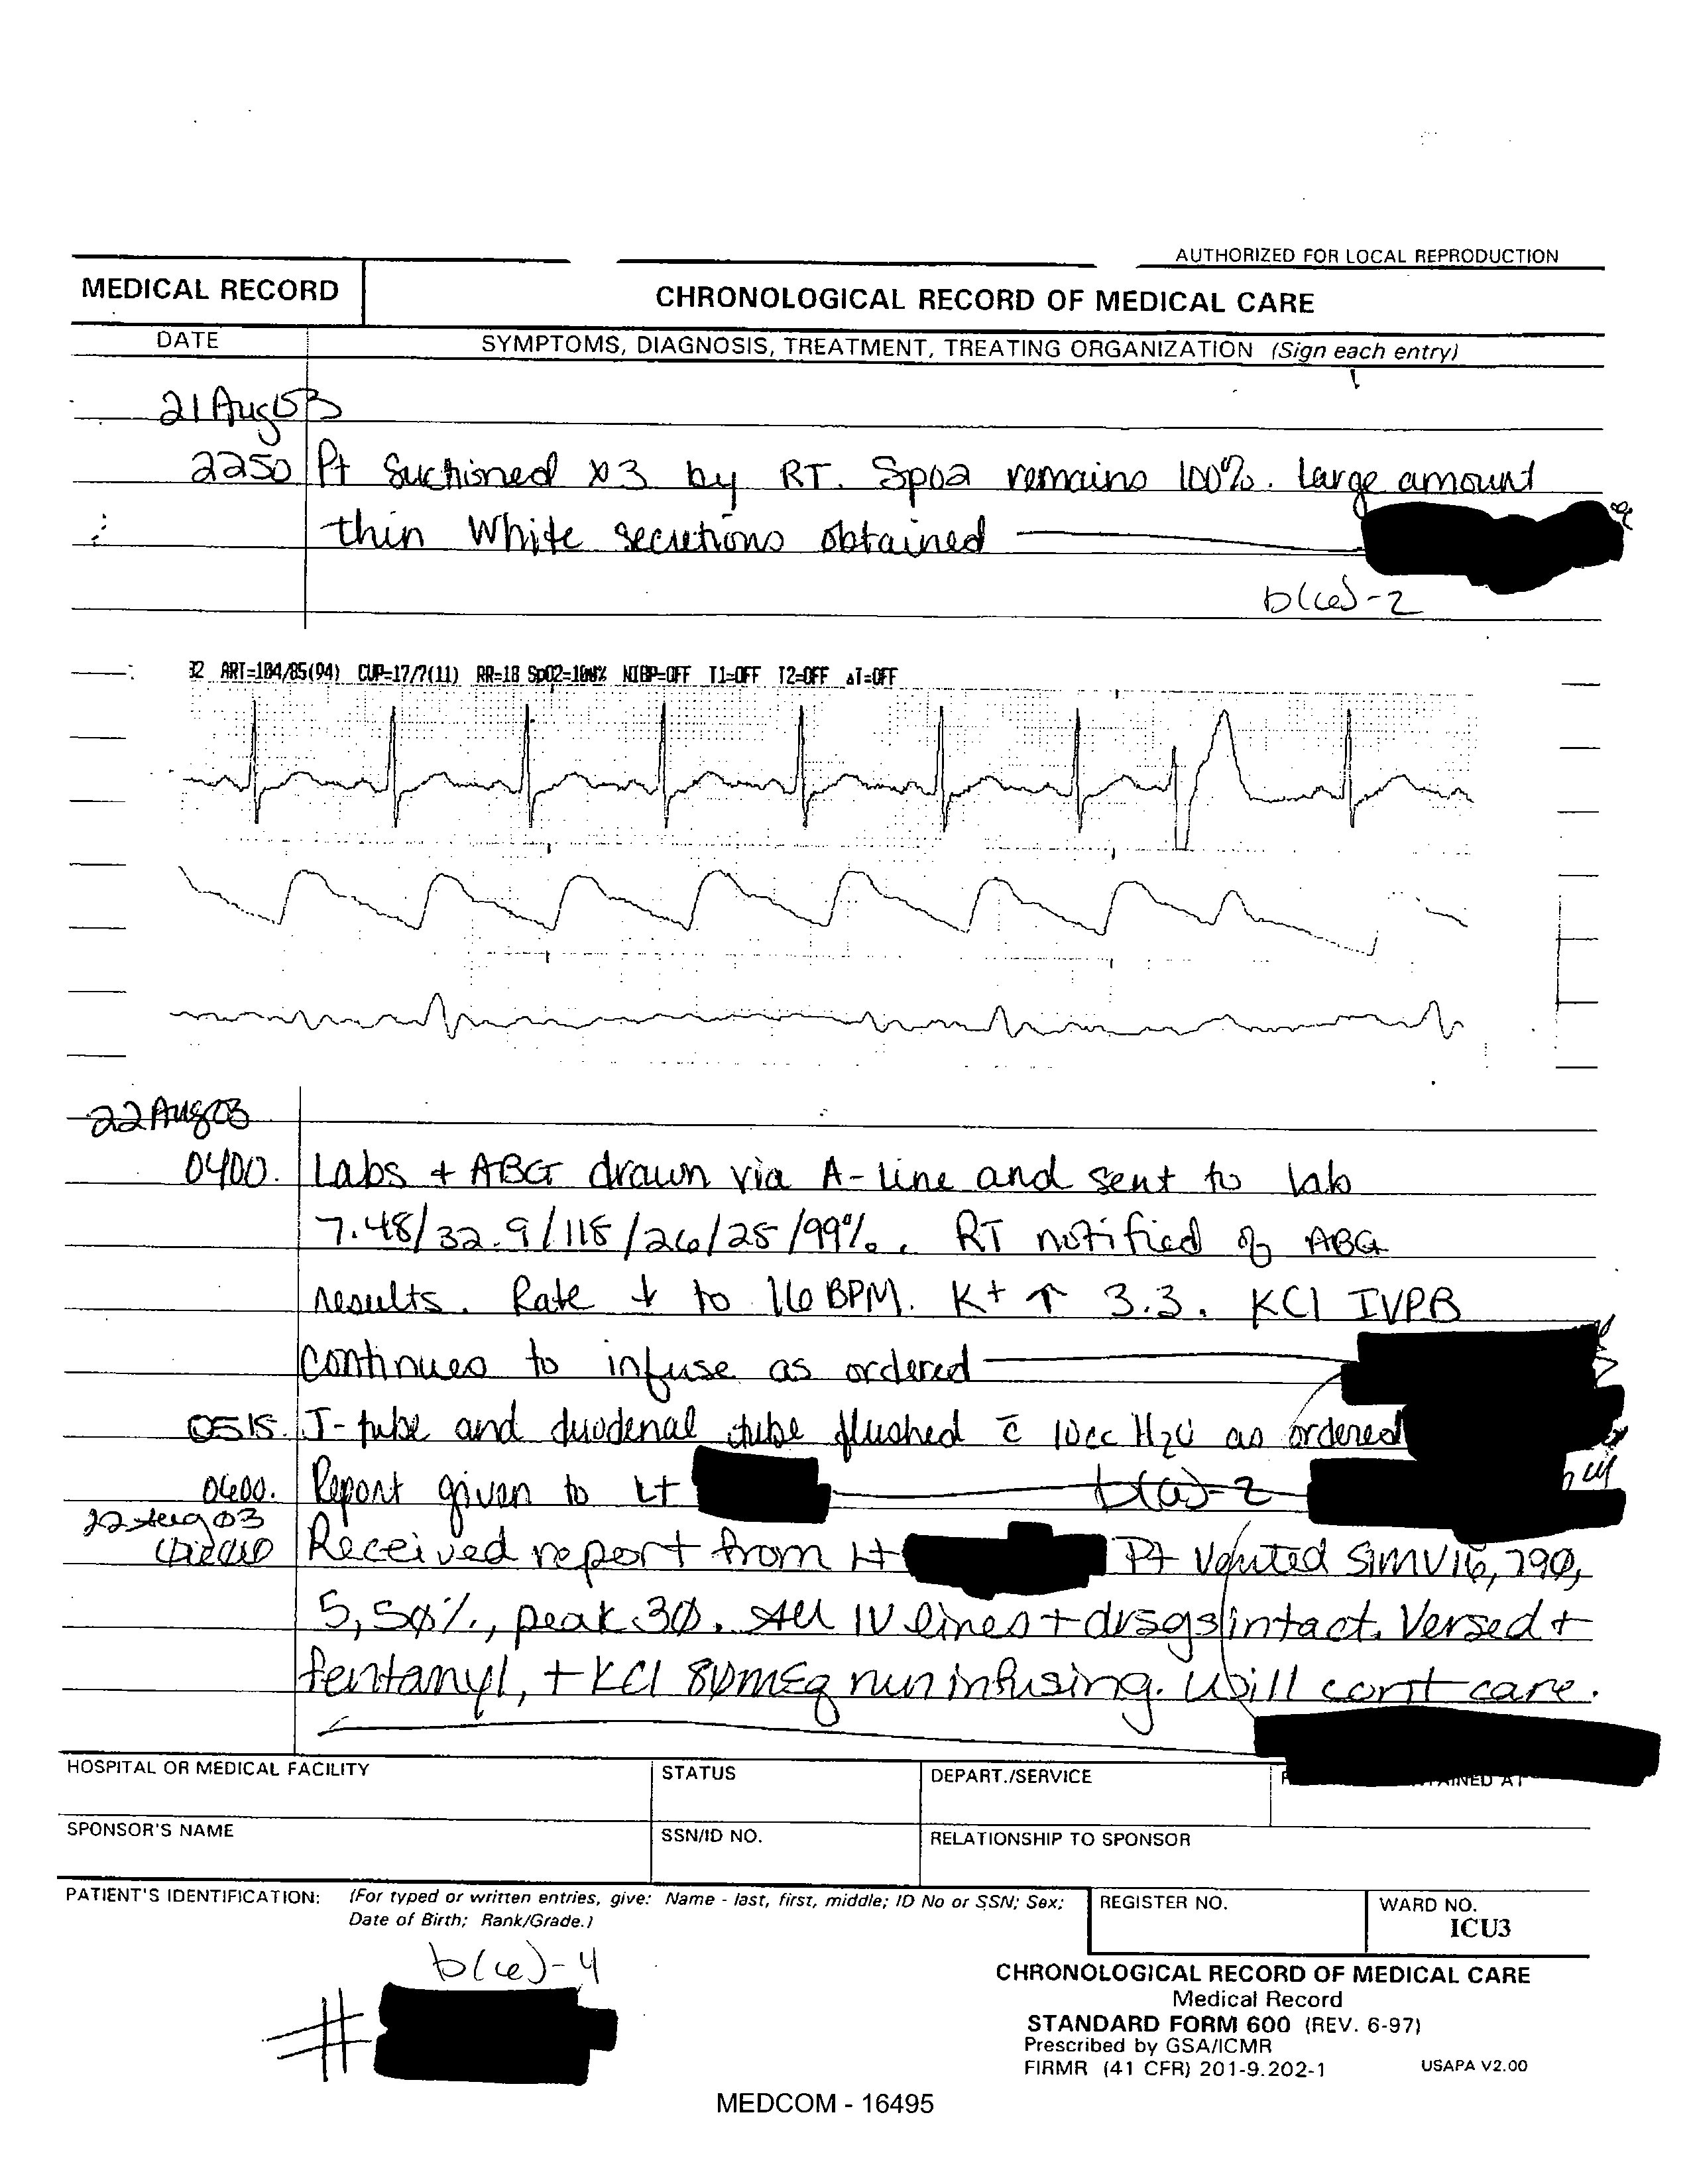 AUTHORIZED FOR LOCAL REPRODUCTION
MEDICAL RECORD
CHRONOLOGICAL RECORD OF MEDICAL CARE
DATE
SYMPTOMS, DIAGNOSIS, TREATMENT, TREATING ORGANIZATION (Sign each entry)
21 Aug 03
2250 Pt Suctioned x3 by RT. Spo2 remains 100%. Large amount
thin White secretions obtained
b(6)-2
32 ART=104/85(94) CVP=17/7(11) RR=18 SpO2=100% NIBP=OFF T1=OFF T2=OFF ΔT=OFF
22 Aug 03
0400. Labs + ABG drawn via A-line and sent to lab
7.48/32.9/118/26/25/99%. RT notified of ABG
results. Rate ↓ to 16 BPM. K+ ↑ 3.3. KCl IVPB
continues to infuse as ordered
0515. J-tube and duodenal tube flushed c̄ 10cc H2O as ordered
0600. Report given to Lt
b(6)-2
22 Aug 03
Received report from Lt Pt Vented SIMV 16, 790,
5, 50%, peak 30. All IV lines + drsgs intact. Versed +
fentanyl, + KCl 80mEq run infusing. Will cont care.
HOSPITAL OR MEDICAL FACILITY
STATUS
DEPART./SERVICE
SPONSOR'S NAME
SSN/ID NO.
RELATIONSHIP TO SPONSOR
PATIENT'S IDENTIFICATION: (For typed or written entries, give: Name - last, first, middle; ID No or SSN; Sex;
Date of Birth; Rank/Grade.)
REGISTER NO.
WARD NO.
ICU3
b(6)-4
#
CHRONOLOGICAL RECORD OF MEDICAL CARE
Medical Record
STANDARD FORM 600 (REV. 6-97)
Prescribed by GSA/ICMR
FIRMR (41 CFR) 201-9.202-1
USAPA V2.00
MEDCOM - 16495